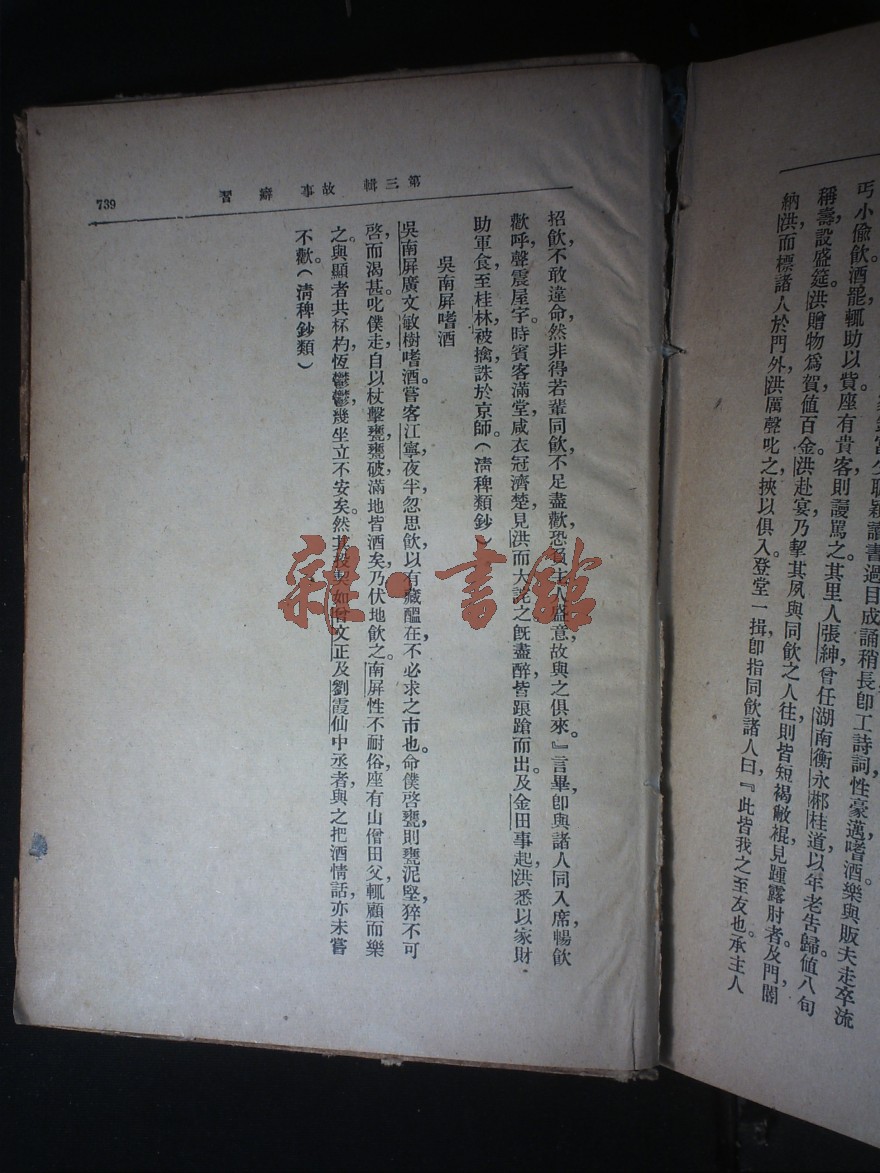 丐小偷飲酒罷輒助以貲座有貴客則謾罵之。其里人張紳曾任湖南衡永郴桂道以年老告歸。値八旬
稱壽，設盛筵。洪贈物爲賀値百金。洪赴宴乃挈其夙與同飲之人往則皆短褐敝褌見踵露肘者。及門，閽
納洪而標諸人於門外，洪厲聲叱之，挾以俱入登堂一揖卽指同飲諸人曰：『此皆我之至友也。承主人
第三輯　故事　癖習
739
招飲，不敢違命，然非得若輩同飲，不足盡歡，恐負主人盛意，故與之俱來。』言畢，卽與諸人同入席，暢飲
歡呼，聲震屋宇。時賓客滿堂，咸衣冠濟楚，見洪而大詫之。旣盡醉，皆踉蹌而出。及金田事起，洪悉以家財
助軍食，至桂林，被擒，誅於京師。（清稗類鈔）
吳南屏嗜酒
吳南屏廣文敏樹嗜酒。嘗客江寧，夜半忽思飲，以有藏醞在，不必求之市也。命僕啓甕，則甕泥堅，猝不可
啓，而渴甚，叱僕走，自以杖擊甕，甕破，滿地皆酒矣，乃伏地飲之。南屏性不耐俗，座有山僧田父，輒顧而樂
之。與顯者共杯杓，恆鬱鬱，幾坐立不安矣。然其投契如曾文正及劉霞仙中丞者，與之把酒情話，亦未嘗
不歡。（清稗鈔類）
雜·書館